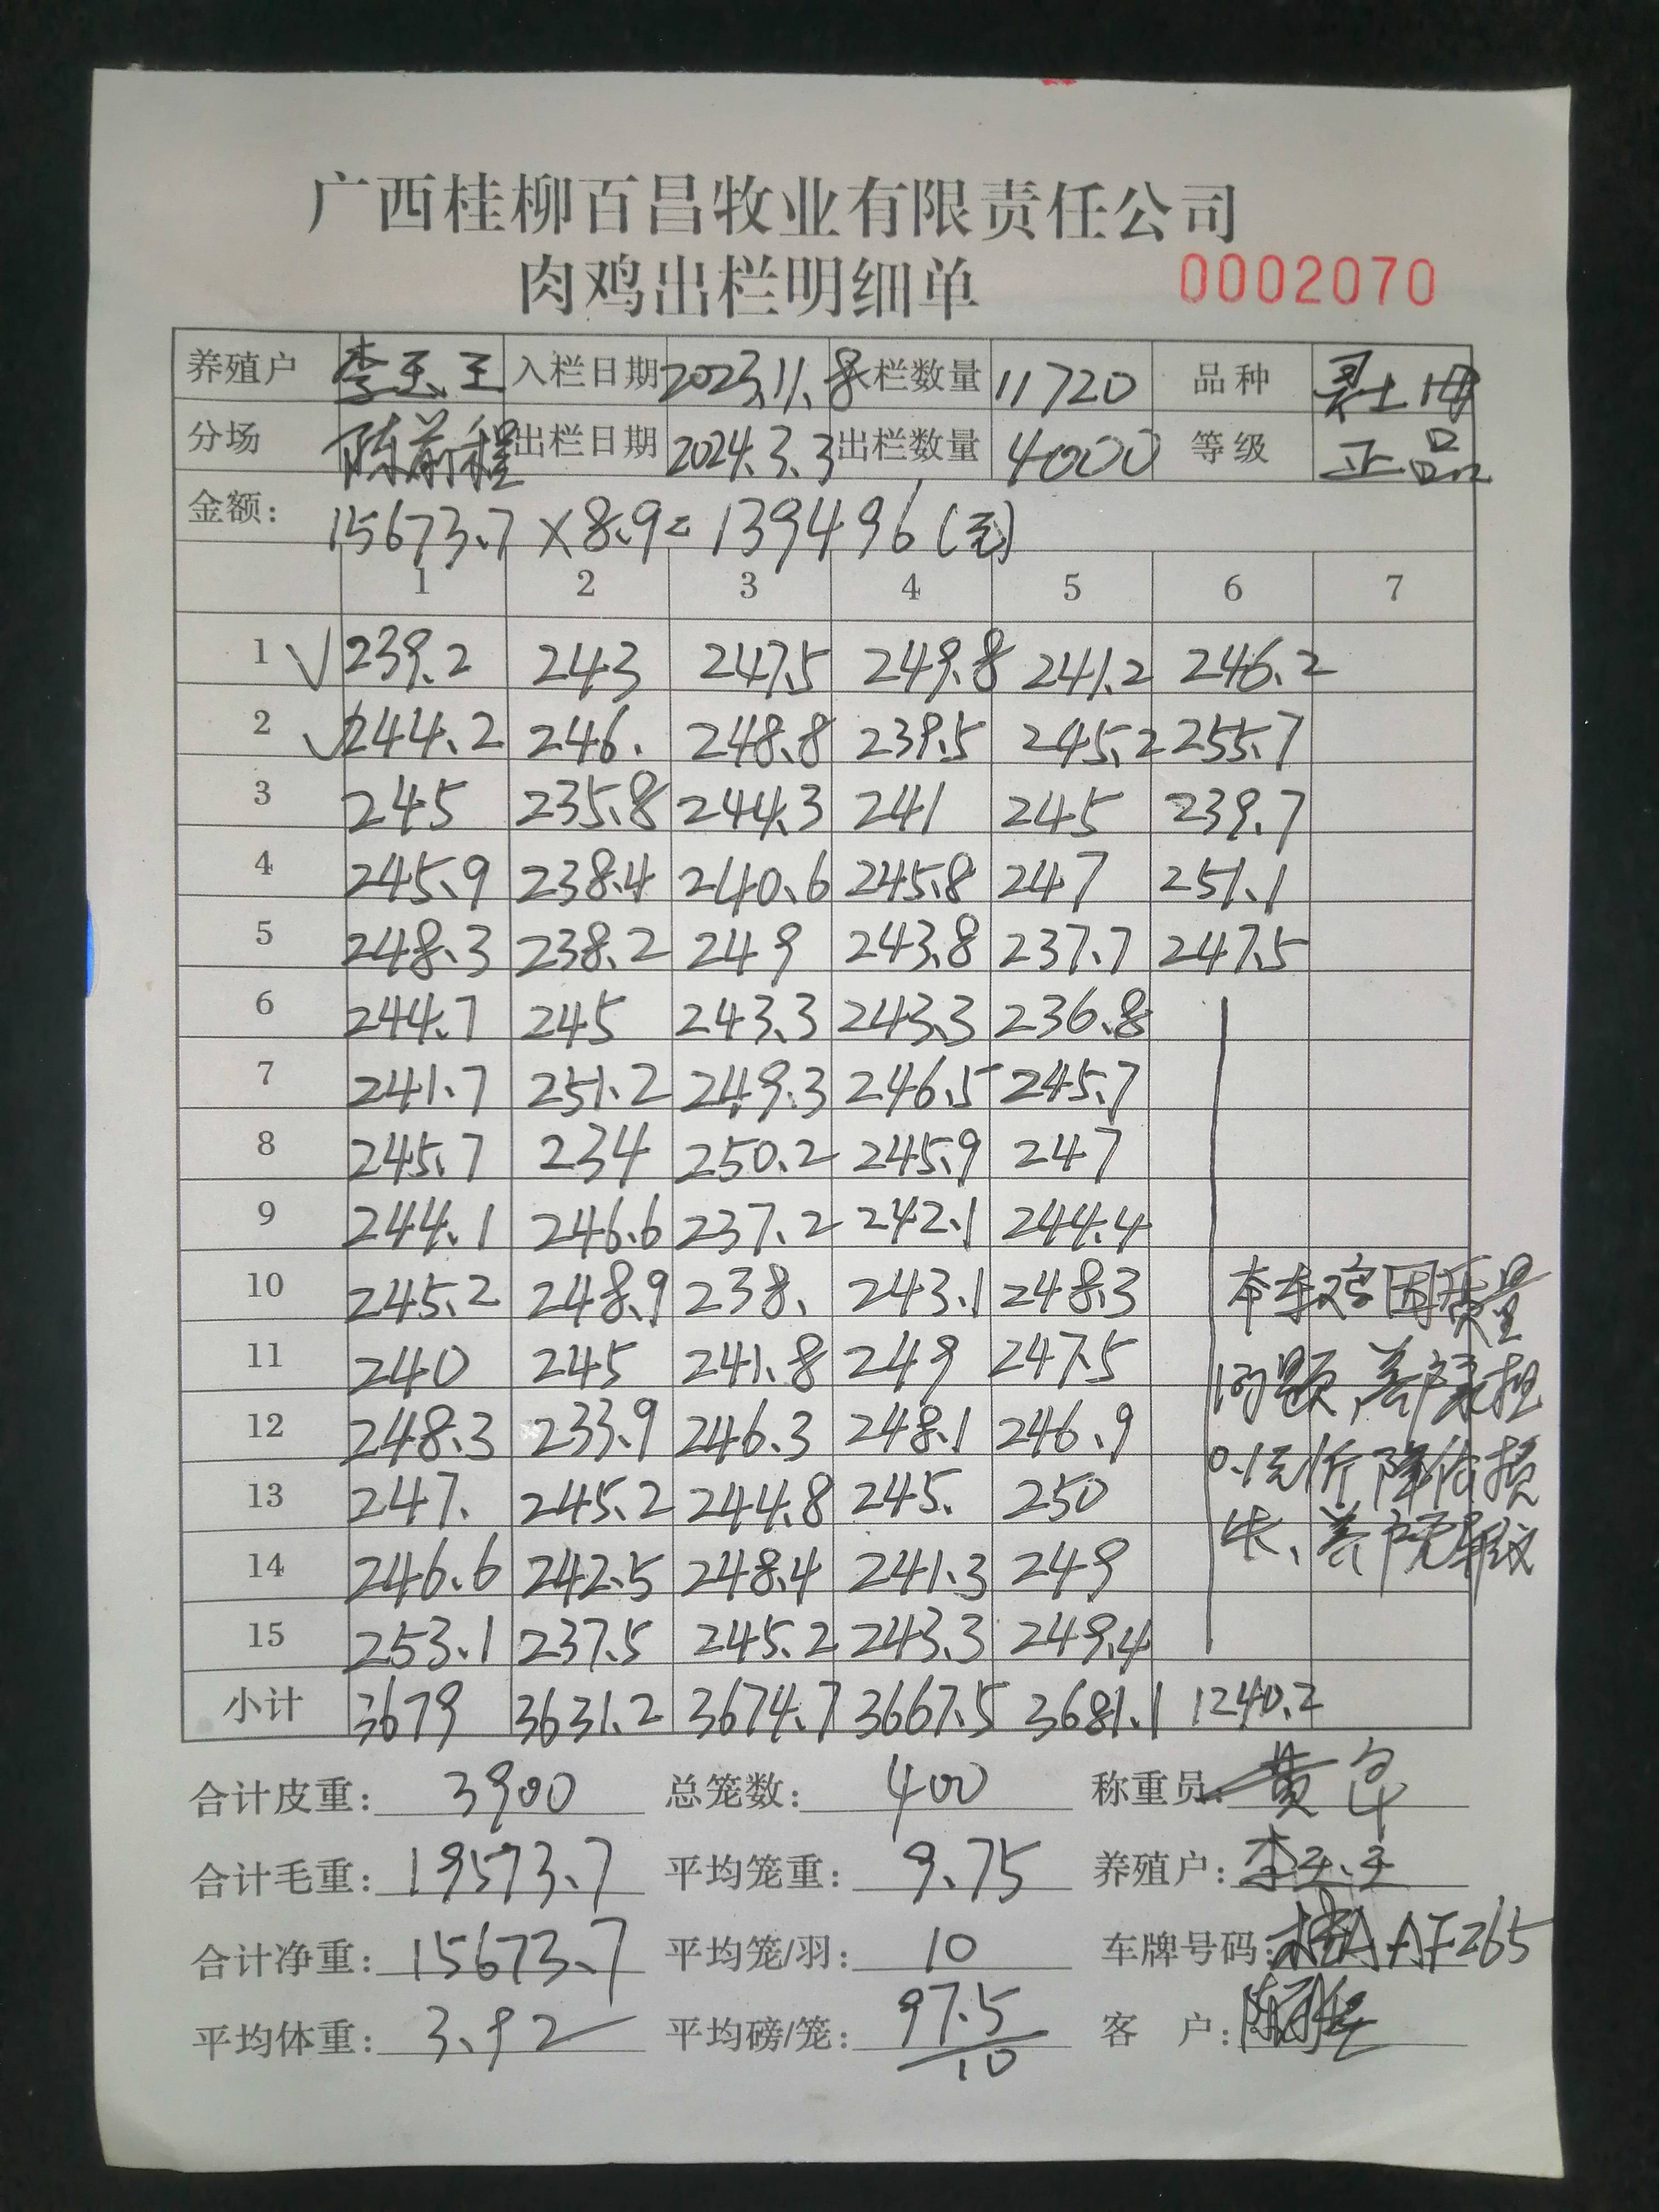 广西桂柳百昌牧业有限责任公司
肉鸡出栏明细单 0002070
养殖户 李玉王 入栏日期 2023.11.8 入栏数量 11720 品种 灵土母
分场 陈前程 出栏日期 2024.3.3 出栏数量 4000 等级 正品
金额: 15673.7×8.9=139496(元)
1 2 3 4 5 6 7
1 √ 239.2 243 247.5 249.8 241.2 246.2
2 √ 244.2 246. 248.8 239.5 245.2 255.7
3 245 235.8 244.3 241 245 239.7
4 245.9 238.4 240.6 245.8 247 251.1
5 248.3 238.2 249 243.8 237.7 247.5
6 244.7 245 243.3 243.3 236.8
7 241.7 251.2 249.3 246.5 245.7
8 245.7 234 250.2 245.9 247
9 244.1 246.6 237.2 242.1 244.4
10 245.2 248.9 238. 243.1 248.3 本车鸡因质量
11 240 245 241.8 249 247.5 问题,养户承担
12 248.3 233.9 246.3 248.1 246.9 0.1元/斤降价损
13 247. 245.2 244.8 245. 250 失、养户无争议
14 246.6 242.5 248.4 241.3 249
15 253.1 237.5 245.2 243.3 249.4
小计 3679 3631.2 3674.7 3667.5 3681.1 1240.2
合计皮重: 3900 总笼数: 400 称重员: 黄
合计毛重: 19573.7 平均笼重: 9.75 养殖户: 李玉王
合计净重: 15673.7 平均笼/羽: 10 车牌号码: 桂AAF265
平均体重: 3.92 平均磅/笼: 97.5/10 客 户: